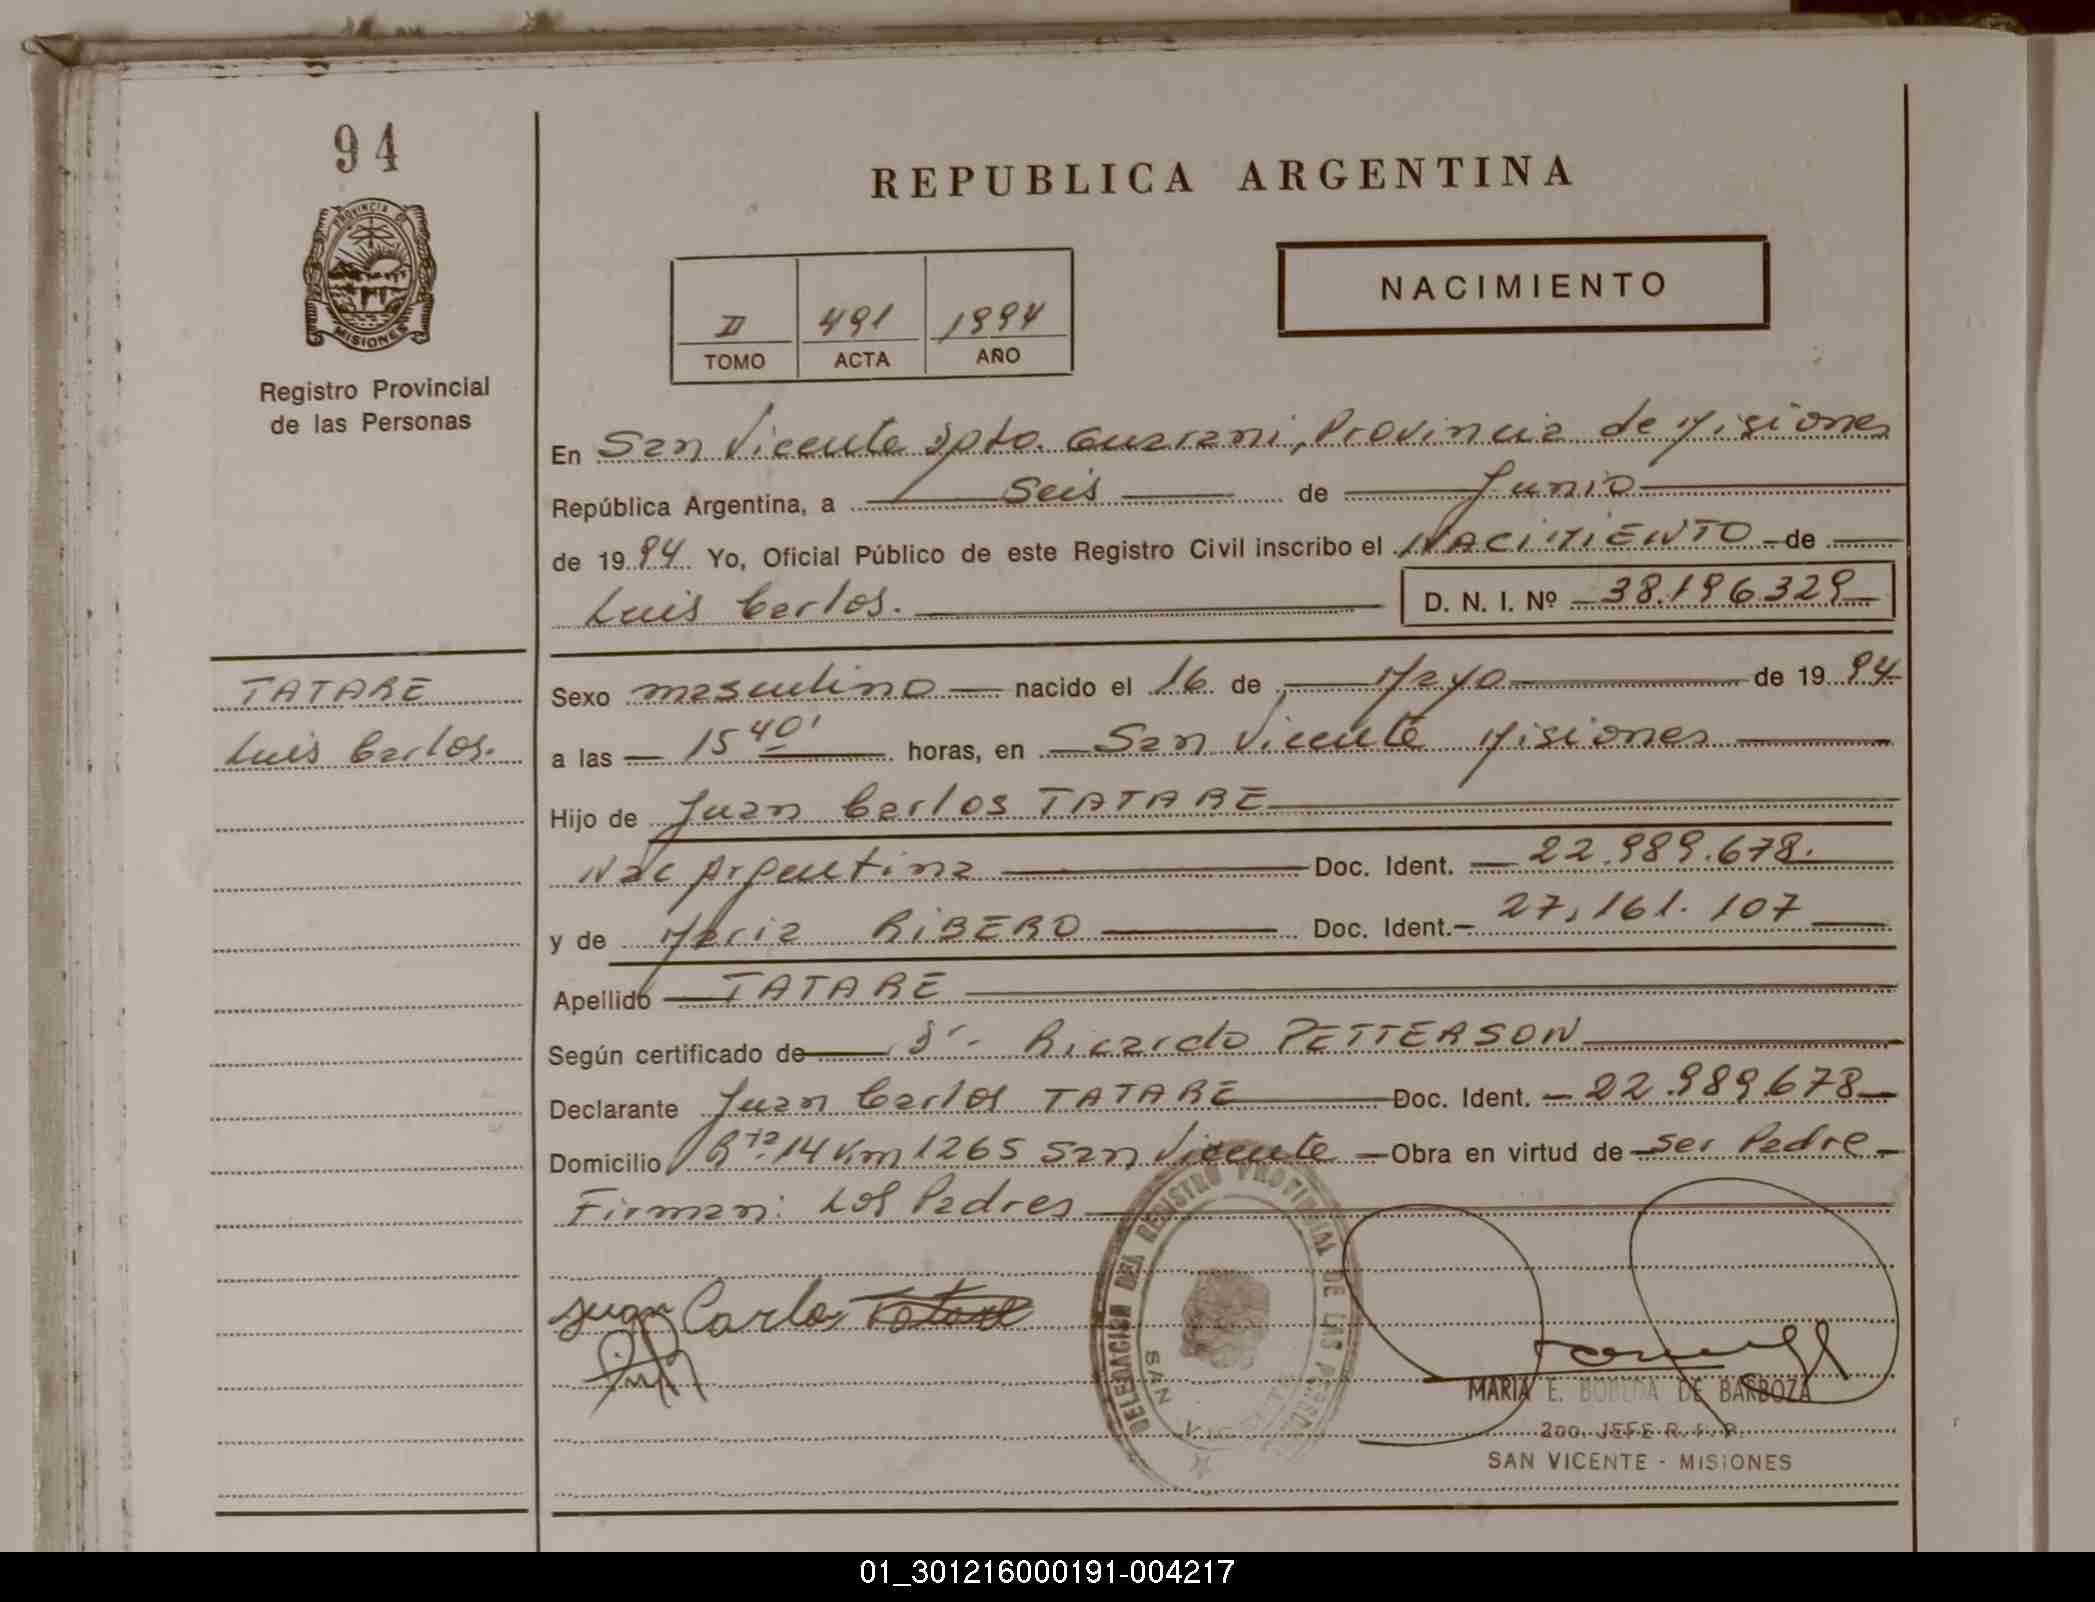 94
PROVINCIA DE
MISIONES
Registro Provincial
de las Personas
REPUBLICA ARGENTINA
NACIMIENTO
II 491 1994
TOMO ACTA AÑO
En San Vicente Dpto. Guarani, Provincia de Misiones
República Argentina, a Seis de Junio
de 1994 Yo, Oficial Público de este Registro Civil inscribo el NACIMIENTO de
Luis Carlos. D. N. I. Nº 38.196329
TATARE
Luis Carlos.
Sexo masculino nacido el 16 de Mayo de 1994
a las 15 40' horas, en San Vicente Misiones
Hijo de Juan Carlos TATARE
Nac Argentina Doc. Ident. 22.989.678.
y de Maria RIBERO Doc. Ident. 27.161.107
Apellido TATARE
Según certificado de Dr. Ricardo PETTERSON
Declarante Juan Carlos TATARE Doc. Ident. 22.989.678
Domicilio Rta. 14 Km 1265 San Vicente Obra en virtud de ser Padre
Firman: Los Padres
Juan Carlo Tatare
DELEGACION DEL REGISTRO PROVINCIAL DE LAS PERSONAS
SAN VICENTE
MARIA E. BOBEDA DE BARBOZA
2do. JEFE R. P. P.
SAN VICENTE - MISIONES
01_301216000191-004217